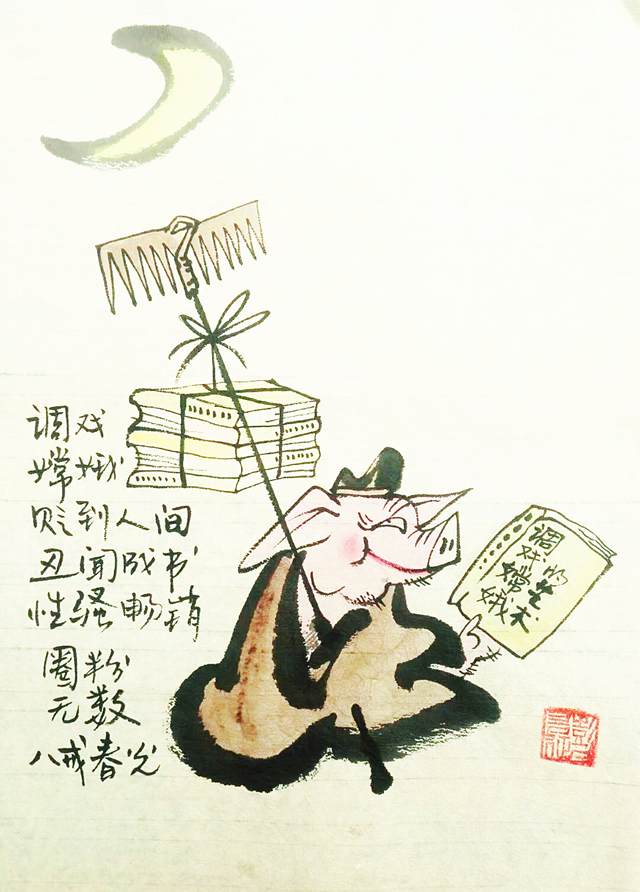 调戏
嫦娥
贬到人间
丑闻成书
性骚畅销
圈粉
无数
八戒春光
调戏嫦娥
的艺术